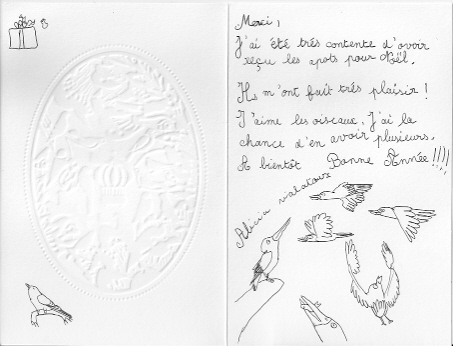 Merci,
J'ai été très contente d'avoir
reçu les apots pour Noël.
Ils m'ont fait très plaisir !
J'aime les oiseaux, j'ai la
chance d'en avoir plusieurs.
A bientôt Bonne Année !!!!
Alicia